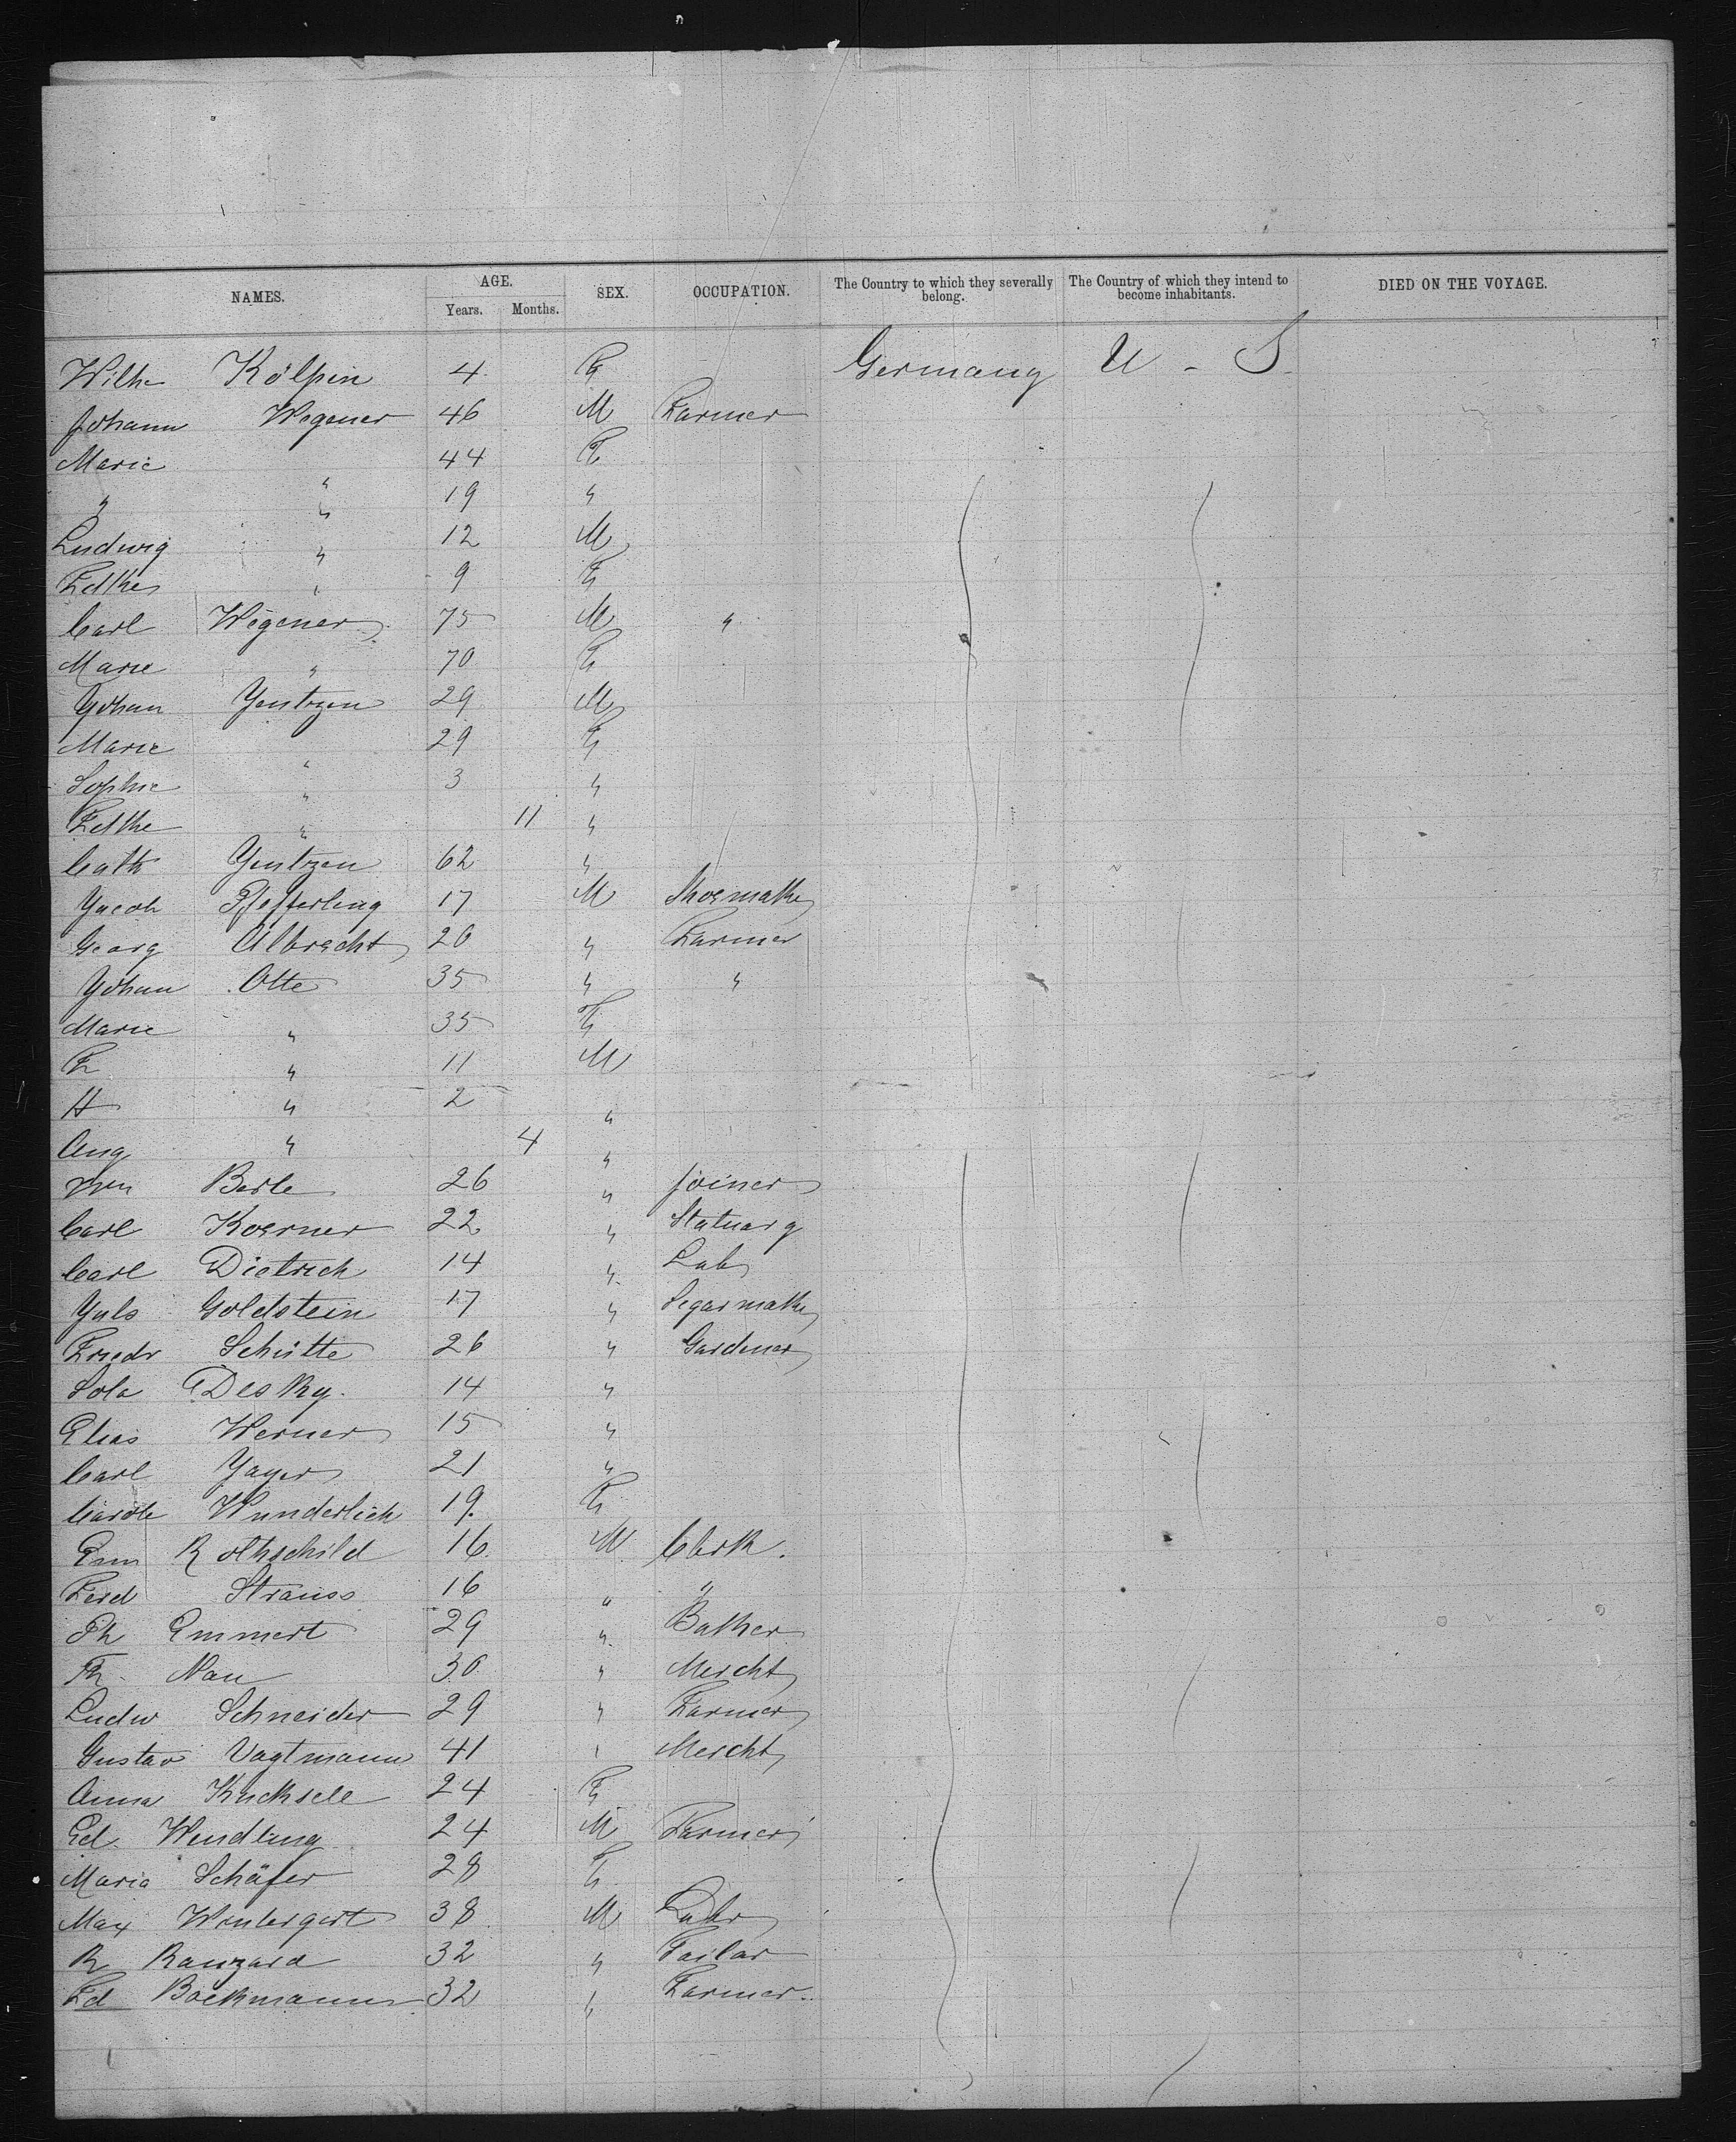 NAMES. AGE. SEX. OCCUPATION. The Country to which they severally belong. The Country of which they intend to become inhabitants. DIED ON THE VOYAGE.
Years. Months.
Wilhe Kölpin 4 F Germany U - S.
Johann Wegener 46 M Farmer
Marie " 44 F
" " 19 "
Ludwig " 12 M
" 9 F
Carl Wegener 75 M "
Marie " 70 F
Johan Jentzen 29 M
Marie " 29 F
Sophie " 3 "
" 11 "
Cath Jentzen 62 "
Jacob Pfefferling 17 M Shoemaker
Georg Albrecht 20 " Farmer
Johan Otte 35 " "
Marie " 35 F
F " 11 M
H " 2 "
Aug " 4 "
Wm Berle 26 " Joiner
Carl Koerner 22 " Statuary
Carl Dietrich 14 " Lab
Juls Goldstein 17 " Segarmaker
Friedr Schütte 26 " Gardener
Sola Desky. 14 "
Elias Werner 15 "
Carl Jager 21 "
Carole Wunderlich 19. F
Em Rothschild 16. M Clerk.
Ferd Strauss 16 " "
Ph Emmert 29 " Baker
Th. Nau 30 " Mercht
Ludw Schneider 29 " Farmer
Gustav Vagtmann 41 " Mercht
Anna 24 F
Ed. Wendling 24 M Farmer
Maria Schäfer 28 F
Max Wintergert 38 M Labr
R Ranzard 32 " Tailor
Fd Bockmann 32 " Farmer.